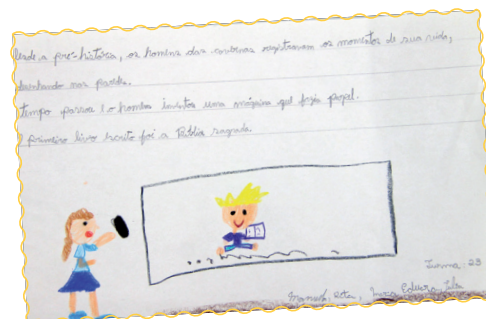 desde a pré-história, os homens das cavernas registravam os momentos de sua vida,
desenhando nas paredes.
tempo passou e o homem inventou uma máquina que fazia papel.
O primeiro livro escrito foi a Bíblia sagrada.
Turma: 23
Eduarda,